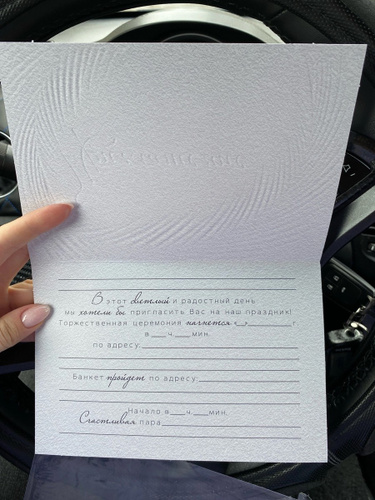 В этот светлый и радостный день
мы хотели бы пригласить Вас на наш праздник!
Торжественная церемония начнется «__»__________г
в___ч.___мин.
по адресу:
Банкет пройдет по адресу:
Начало в___ч.___мин.
Счастливая пара